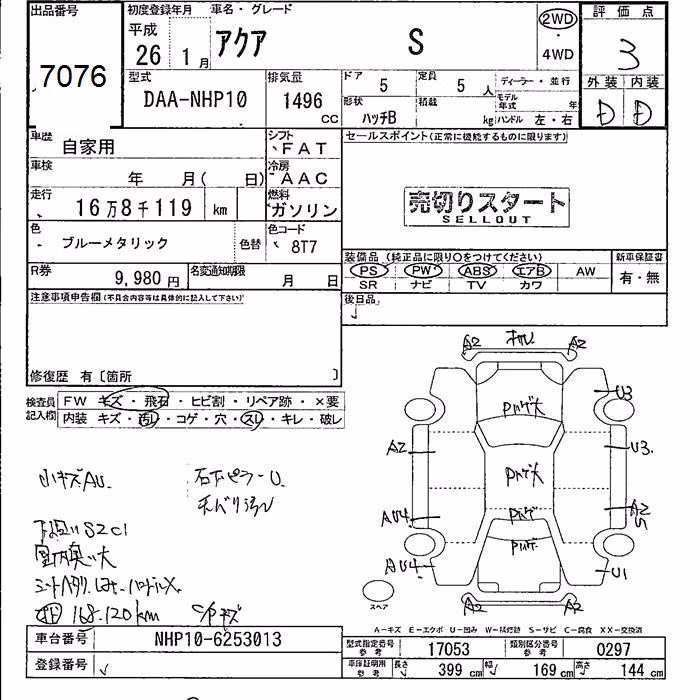 出品番号
7076
初度登録年月
平成
26 1月
車名・グレード
アクア S
2WD
・
4WD
評価点
3
外装 内装
D D
型式
DAA-NHP10
排気量
1496
CC
ドア 5
定員 5人
ディーラー・並行
形状
ハッチB
積載 kg
モデル年式 年
ハンドル 左・右
車歴
自家用
シフト
FAT
車検
年 月( 日)
冷房
AAC
走行
16万8千119 km
燃料
ガソリン
色
ブルーメタリック
色替
色コード
8T7
R券
9,980円
名変通知期限
月 日
セールスポイント(正常に機能するものに限ります)
売切りスタート
SELLOUT
装備品(純正品に限り○をつけてください)
PS PW ABS エアB AW
SR ナビ TV カワ
新車保証書
有・無
後日品
注意事項申告欄(不具合内容等は具体的に記入して下さい)
修復歴 有〔箇所 〕
検査員
記入欄
FW キズ・飛石・ヒビ割・リペア跡・×要
内装 キズ・汚レ・コゲ・穴・スレ・キレ・破レ
小キズAU.
下廻りS2C1
室内臭い大
シートヘタリ.
168.120km
A2 A2
U3
A2 U3
AU4 A2
S
AU4 U1
A2 A2
スペア
A-キズ E-エクボ U-凹み W-補修跡 S-サビ C-腐食 XX-交換済
車台番号
NHP10-6253013
登録番号
型式指定番号
参考
17053
類別区分番号
参考
0297
車庫証明用
参考
長さ 399cm
幅 169cm
高さ 144cm